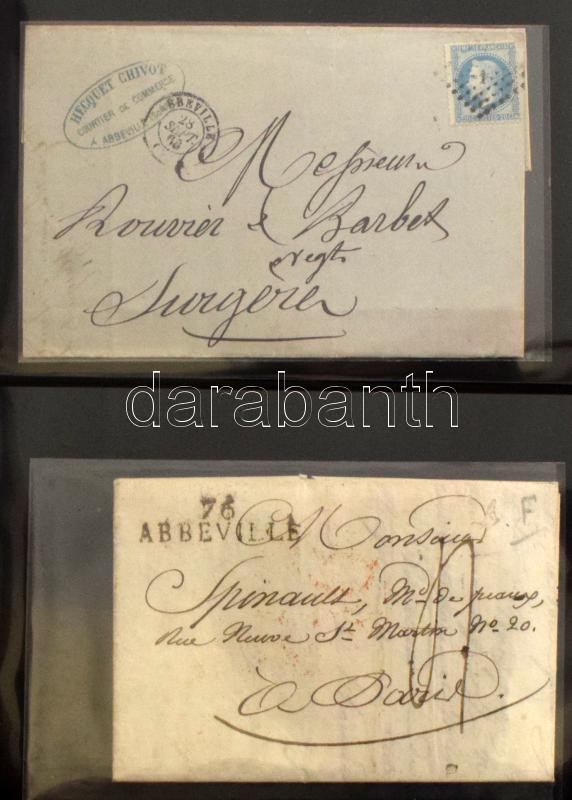 HECQUET CHIVOT
COURTIER DE COMMERCE
A ABBEVILLE
ABBEVILLE
28
SEPT.
Messieurs
Rouvier & Barbet
negts
Surgères
darabanth
76
ABBEVILLE
F
Monsieur
Spinault, Md. de peaux,
Rue Neuve St. Martin No. 20.
à Paris.